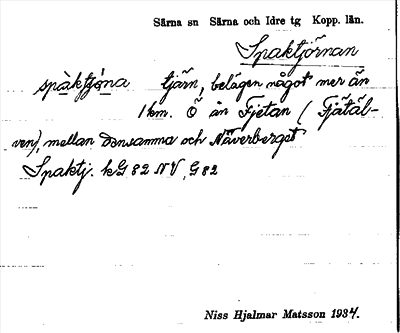 Särna sn Särna och Idre tg Kopp. län.
Spaktjörnan
spàktjø̀na tjärn, belägen något mer än
1 km. Ö än Fjetan (Fjätäl-
ven), mellan densamma och Näverberget
Spaktj. kG 82 NV, G 82
Niss Hjalmar Matsson 1934.